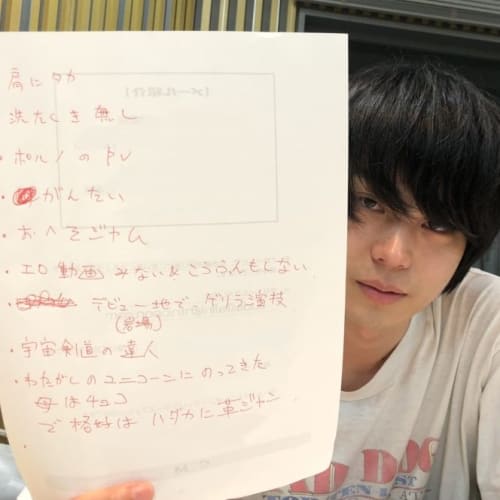 肩にタカ
洗たくき無し
・ポルノのPV
・がんたい
・おへそジャム
・エロ動画みない&こうふんもしない
・デビュー地でゲリラ演技
(岩場)
・宇宙剣道の達人
・わたがしのユニコーンにのってきた
母はチョコ
で格好はハダカに革ジャン
・
[メール紹介]
BAD DOG
TOP TEN LIST